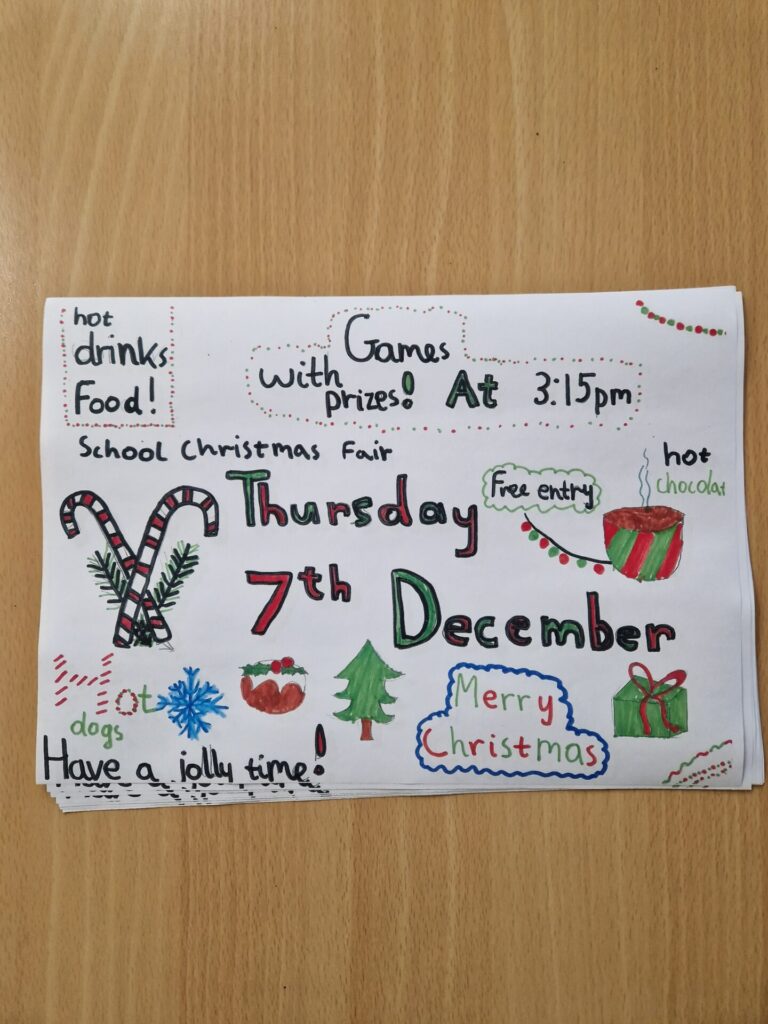 hot
drinks
Food!
Games
with
prizes!
At 3:15pm
School Christmas Fair
Thursday
7th December
Free entry
hot
chocolat
Hot
dogs
Merry
Christmas
Have a jolly time!